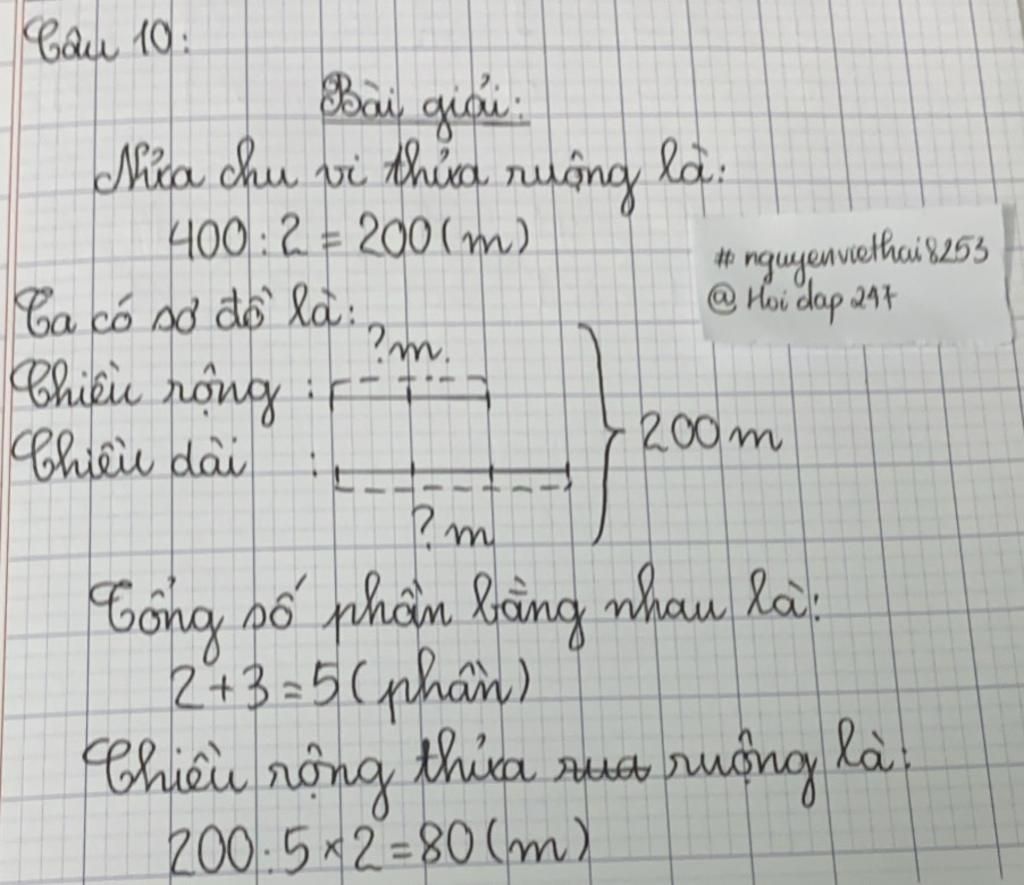 Câu 10:
Bài giải:
Nửa chu vi thửa ruộng là:
400 : 2 = 200 (m)
# nguyenviethai8253
@ Hoi dap 247
Ta có sơ đồ là:
?m.
Chiều rộng :
200 m
Chiều dài :
?m
Tổng số phần bằng nhau là:
2 + 3 = 5 (phần)
Chiều rộng thửa ruộng là:
200 : 5 × 2 = 80 (m)